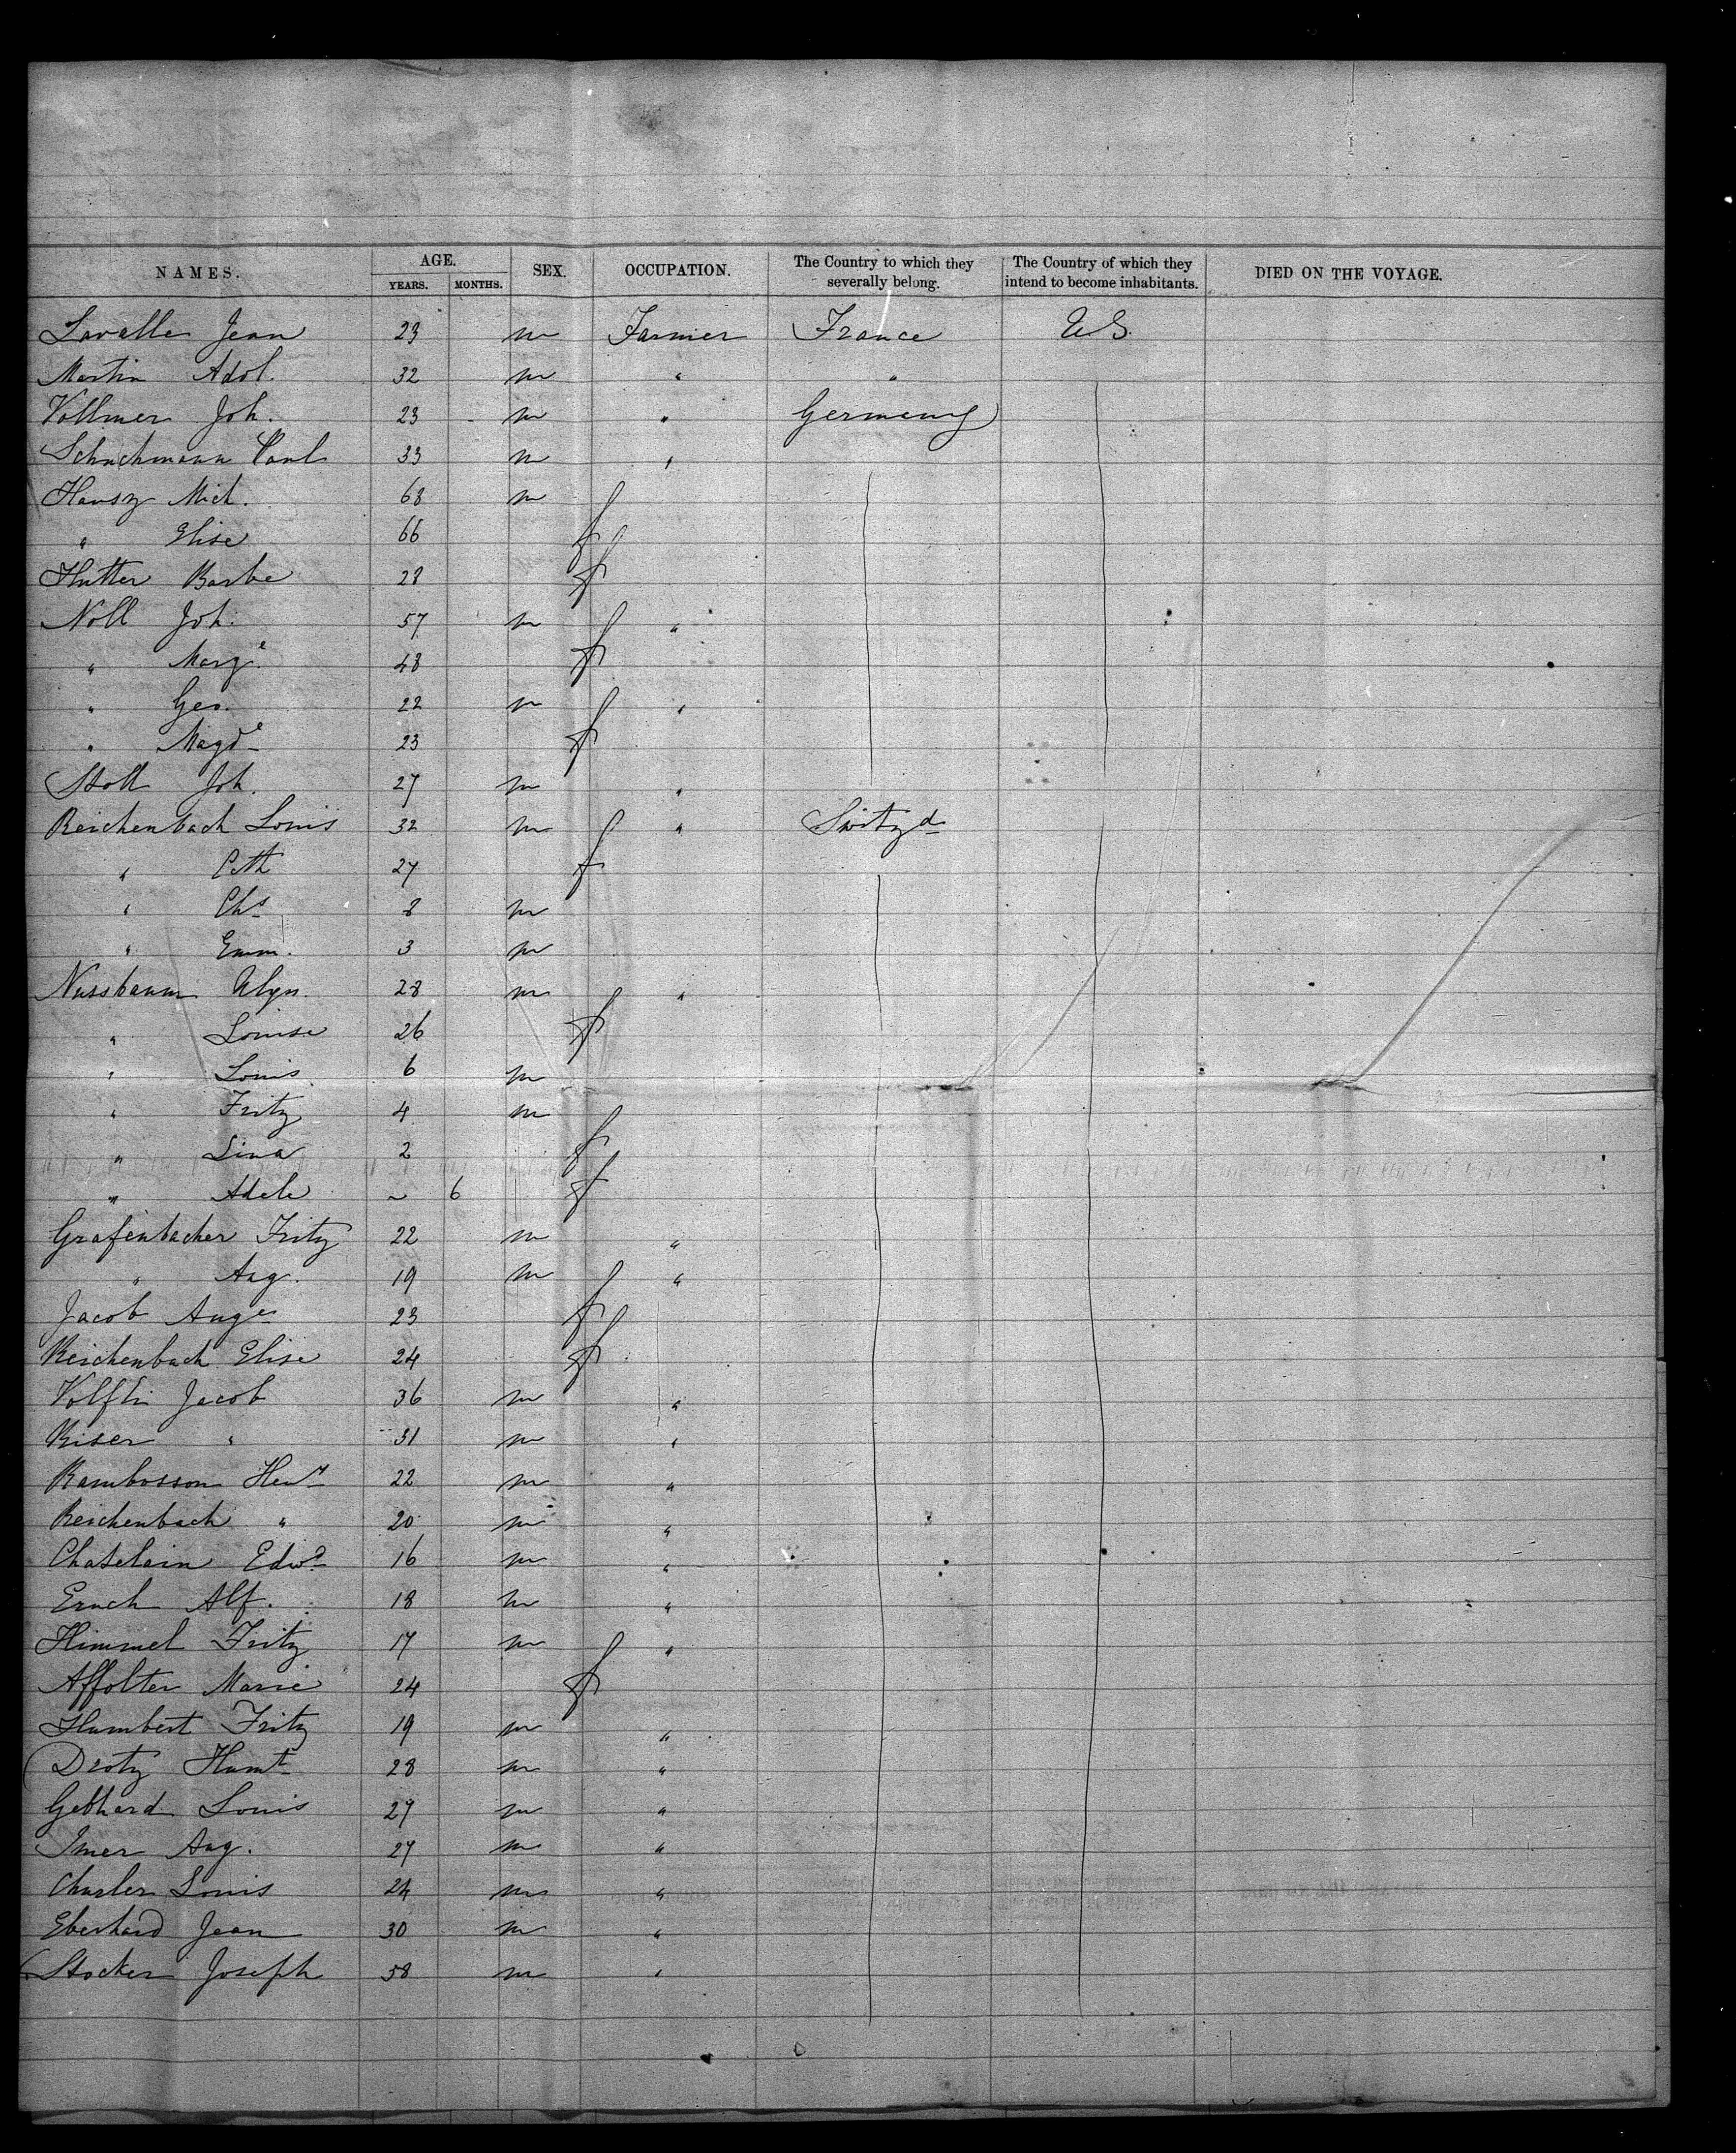 NAMES. AGE. SEX. OCCUPATION. The Country to which they severally belong. The Country of which they intend to become inhabitants. DIED ON THE VOYAGE.
YEARS. MONTHS.
Lavalle Jean 23 m Farmer France U.S.
Martin Adol. 32 m " "
Vollmer Joh. 23 m " Germany
Schuchmann Carl 33 m "
Hausz Mich. 68 m
" Elise 66 f
Hutter Barbe 28 f
Noll Joh. 57 m "
" Marg.e 48 f
" Geo. 22 m "
" Magde 23 f
Stoll Joh. 27 m "
Reichenbach Louis 32 m " Switzd
" Cath 27 f
" Chs 8 m
" Emm. 3 m
Nussbaum Ulys. 28 m "
" Louise 26 f
" Louis 6 m
" Fritz 4 m
" Lina 2 f
" Adele ~ 6 f
Grafenbacher Fritz 22 m "
" Aug. 19 m "
Jacob Auge 23 f
Reichenbach Elise 24 f
Volfli Jacob 36 m "
Kiser " 31 m "
Rambosson Heny 22 m "
Reichenbach " 20 m "
Chatelain Edwd 16 m "
Alf. 18 m "
Himmel Fritz 17 m "
Affolter Marie 24 f
Humbert Fritz 19 m "
Droty Humt 28 m "
Gebhard Louis 29 m "
Imer Aug. 27 m "
Louis 24 m "
Eberhard Jean 30 m "
Stocker Joseph 58 m "